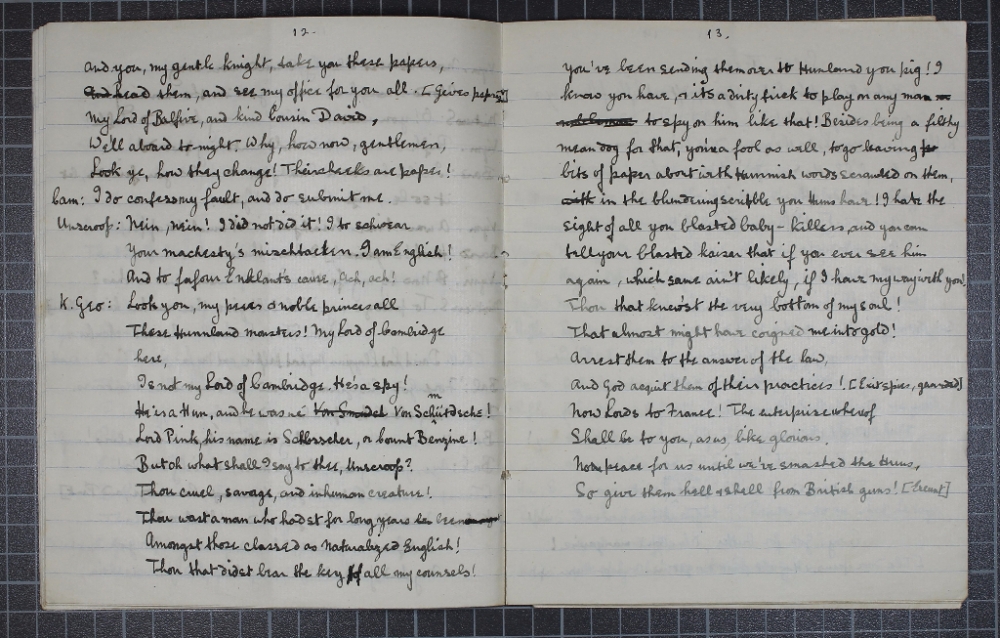 12.
And you, my gentle knight, take you these papers,
And read them, and see my office for you all. [Gives papers]
My Lord of Balfire, and kind Cousin David,
We'll aboard to-night. Why, how now, gentlemen,
Look ye, how they change! Their cheeks are paper!
Cam: I do confess my fault, and do submit me.
Unscroop: Nein, nein! I did not did it! I to schwear
Your machesty's mischtacken. I am English!
And to fafour Enklant's cause, Ach, ach!
K. Geo: Look you, my peers & noble princes all
These Hunnland monsters! My Lord of Cambridge
here,
Is not my Lord of Cambridge. He's a spy!
He's a Hun, and he was né Von Smadel Von Schmütdsche!
Lord Pink, his name is Schlosscher, or bount Benzine!
But oh what shall I say to thee, Unscroop?
Thou cruel, savage, and inhuman creature!
Thou wast a man who hadst for long years been
Amongst those classed as Naturalized English!
Thou that didst bear the key of all my counsels!
13.
You've been sending them over to Hunland you pig! I
know you have, & it's a dirty trick to play on any man
to spy on him like that! Besides being a filthy
mean dog for that, you're a fool as well, to go leaving
bits of paper about with Hunnish words scrawled on them,
in the blundering scribble you Huns have! I hate the
sight of all you blasted baby-killers, and you can
tell your blasted Kaiser that if you ever see him
again, which same ain't likely, if I have my way with you!
Thou that knew'st the very bottom of my soul!
That almost might have coigned me into gold!
Arrest them to the answer of the law,
And God acquit them of their practices! [Exit spies, guarded]
Now Lords to France! The enterprise whereof
Shall be to you, as us, like glorious.
No peace for us until we've smashed the Huns,
So give them hell & shell from British guns! [Exeunt]